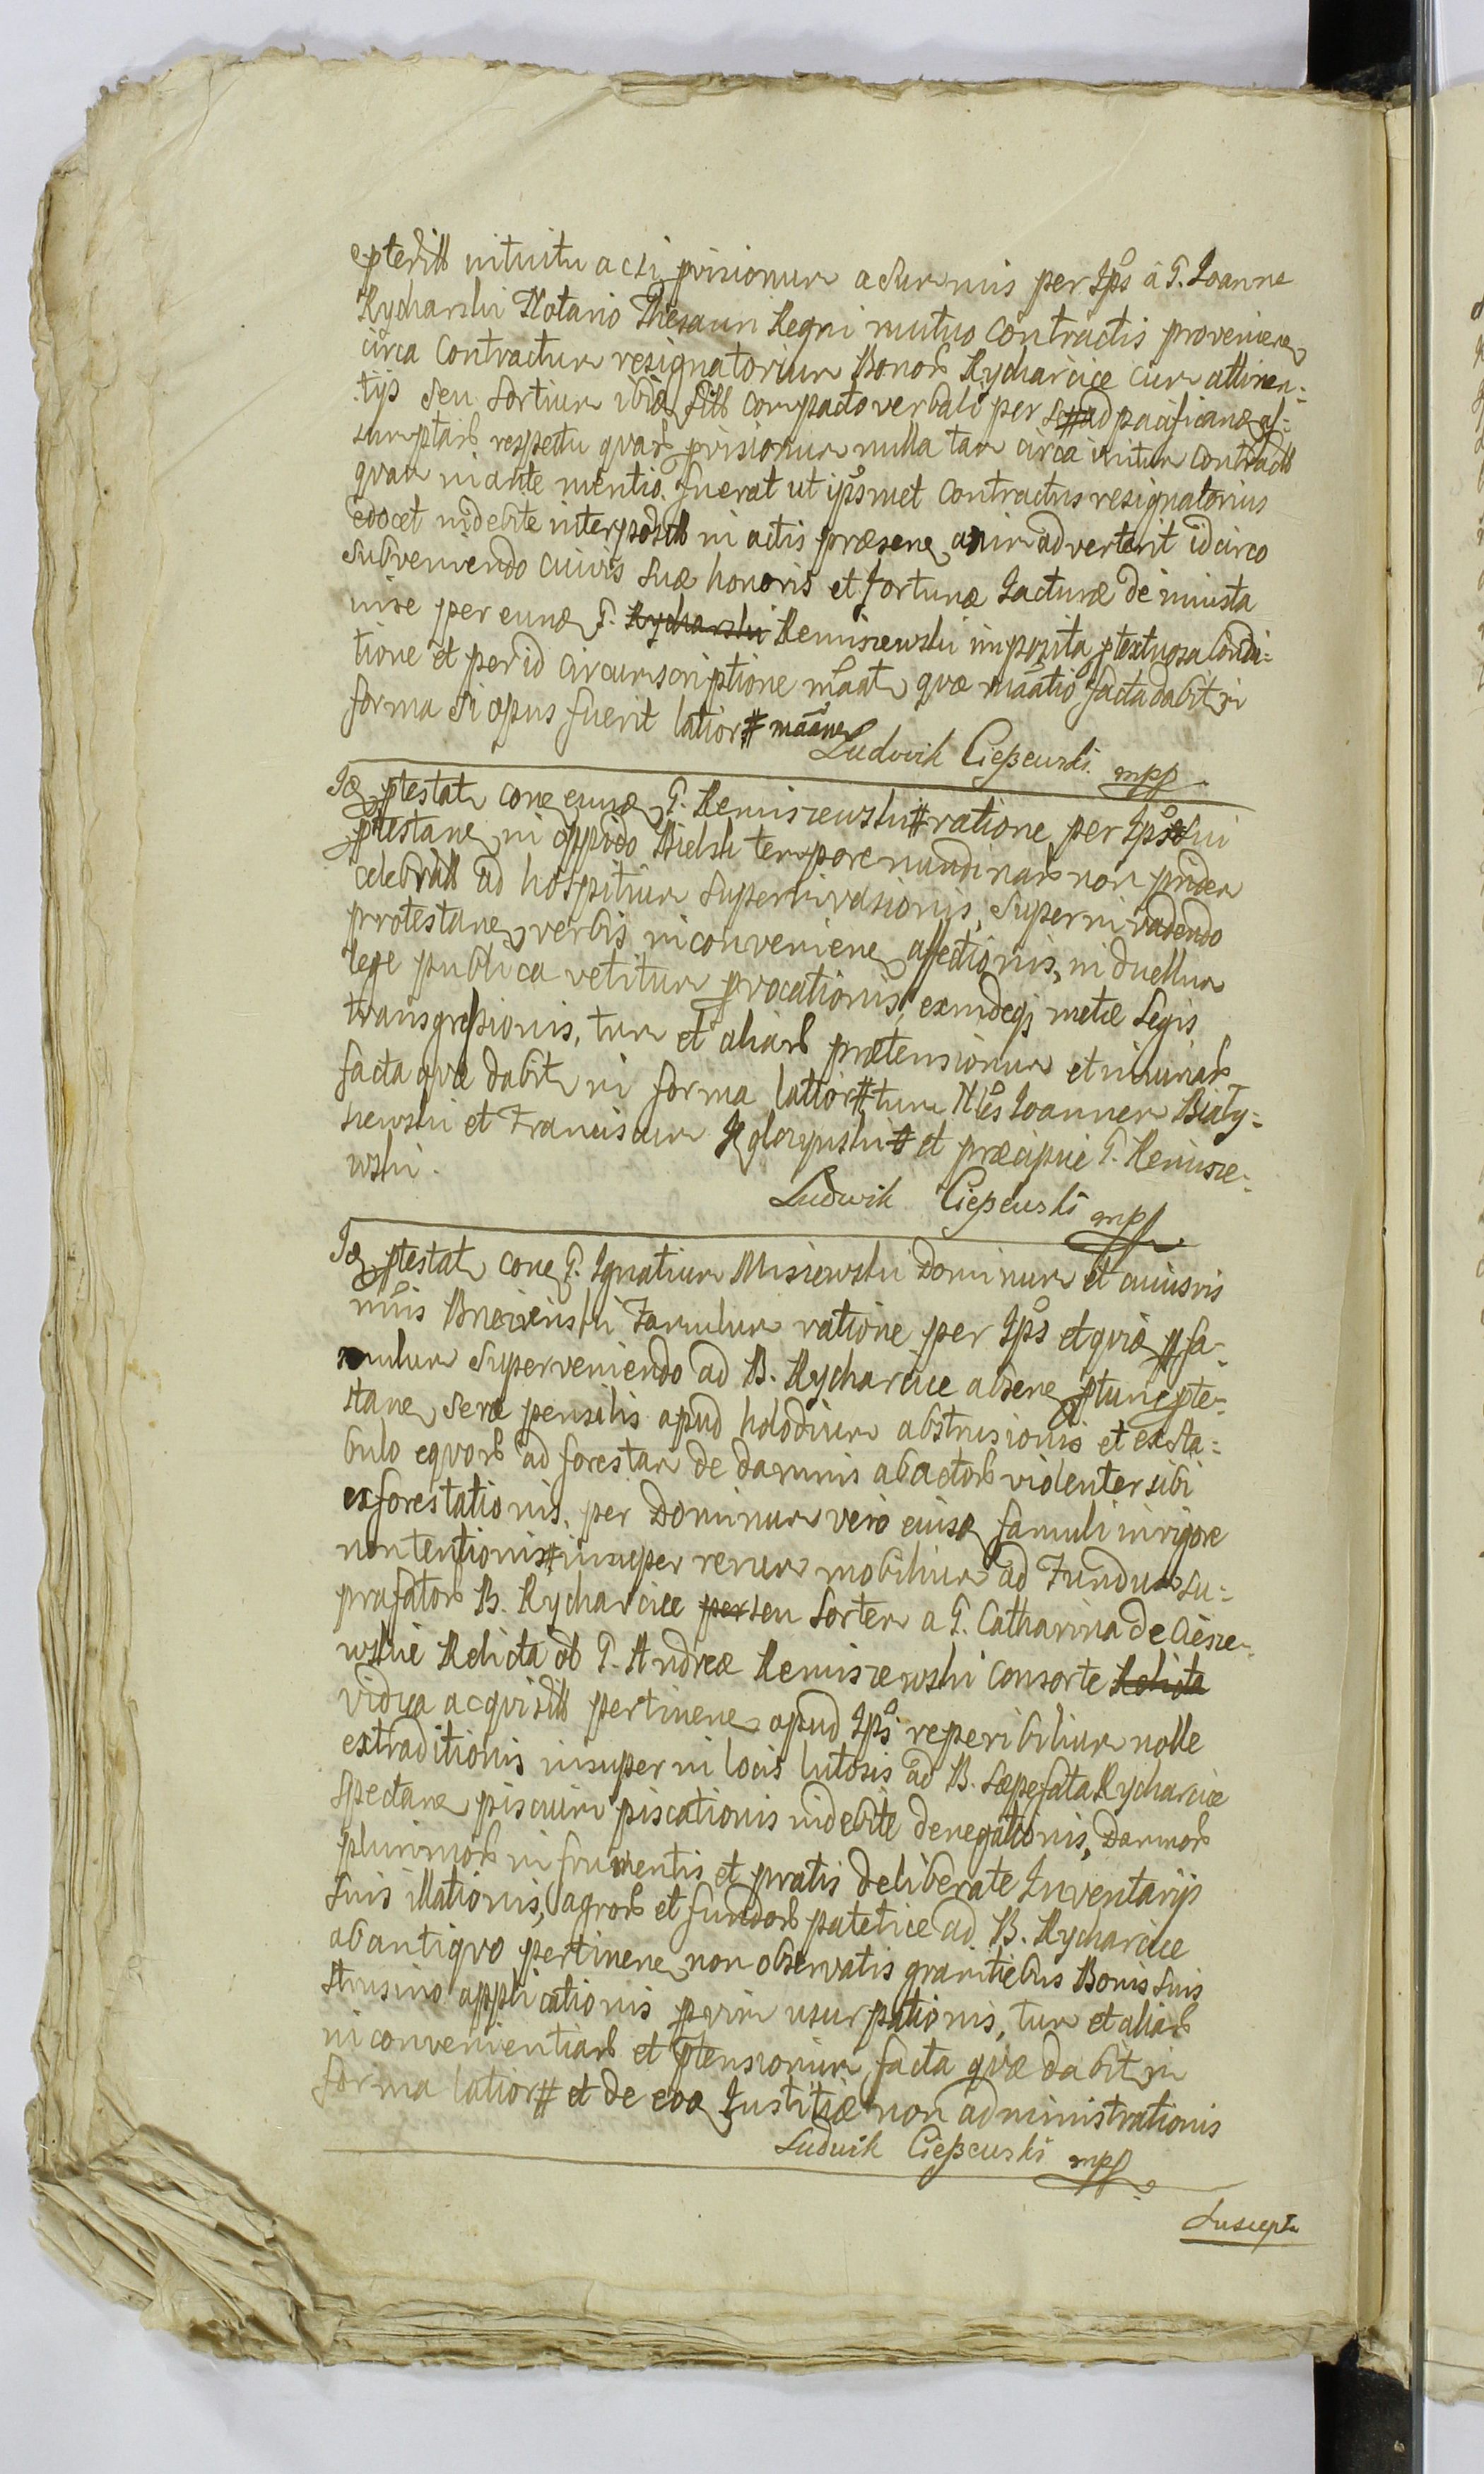 intuitu acti provisionum a summis per Ips a G. Joanne
Rycharski Notario Thesauri Regni mutuo contractis provenien
circa Contractum resignatorium Bonor Rycharcice cum attinen=
tijs seu Sortium ibid compacto verbali per se ad pacificand as=
sumptar respectu quar provisionum nulla tam circa initum contract
quam in ante mentio fuerat ut ipsmet Contractus resignatorius
edocet indebite interposit in actis praesen animadverterit idcirco
subveniendo cuivis suae honoris et fortunae Jacturae de iniusta
in se per eund G. Rycharski Remiszewski imposita ptextuosa Condi=
tione et per id circumscriptione maat quae maatio facta dabit in
forma si opus fuerit latiori # maane
Ludwik Cieszewski mpp
Id ptestat con eund G. Remiszewski # ratione per Ips sui
ptestan in oppido Bielsk tempore nundinar non pridem
celebrat ad hospitium superinvasionis, superinvadendo
protestan verbis inconvenien affectionis, in duellum
lege publica vetitum provocationis exindeq metae Legis
transgressionis, tum et aliar praetensionum et iniuriar
facta quae dabit in forma latiori # tum Nles Joannem Biały=
szewski et Franciscum Zgloczynski # et praecipue G. Remisze=
wski.
Ludwik Cieszewski mpp
Id ptestat con G. Ignatium Misiewski Dominum et cuiusvis
nois Brzezinski Famulum ratione per Ips et quid p fa=
mulum superveniendo ad B. Rycharcice absen ptunc pte=
stan serae pensilis apud holodium abstrusionis et ex sta=
bulo equor ad forestam de damnis abactor violenter sibi
exforestationis, per Dominum vero eiusd famuli in rigore
non tentionis # insuper rerum mobilium ad Fundum su=
prafator B. Rycharcice per seu Sortem a G. Catharina de Ciesze=
wskie Relicta ol G. Andreae Remiszewski consorte Relicta
vidua acquisit pertinen apud Ips reperibilium nolle
extraditionis insuper in locis lutosis ad B. saepefata Rycharcice
spectan piscium piscationis indebite denegationis, Damnor
plurimor in frumentis et pratis deliberate Inventarijs
suis illationis, agror et fundor patetice ad B. Rycharcice
ab antiquo pertinen non observatis granitiebus Bonis suis
Strusino applicationis pvim usurpationis, tum et aliar
inconvenientiar et ptensionum facta quae dabit in
forma latiori # et de eod Justitiae non administrationis
Ludwik Cieszewski mpp
Suscepta